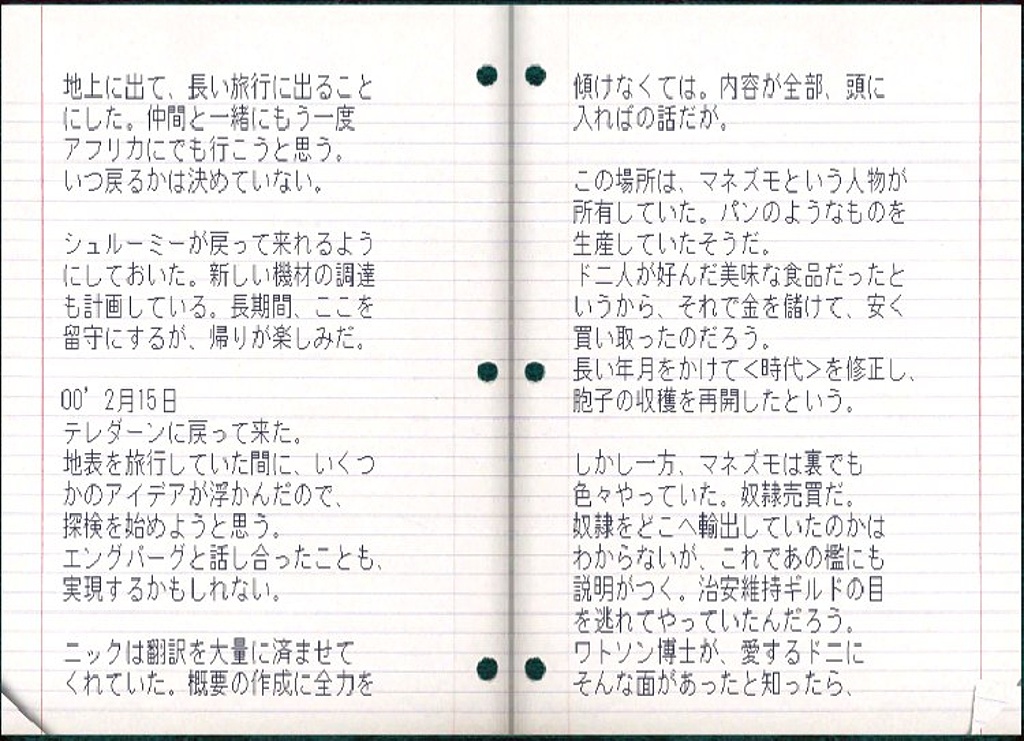 地上に出て、長い旅行に出ること
にした。仲間と一緒にもう一度
アフリカにでも行こうと思う。
いつ戻るかは決めていない。
シュルーミーが戻って来れるよう
にしておいた。新しい機材の調達
も計画している。長期間、ここを
留守にするが、帰りが楽しみだ。
00’ 2月15日
テレダーンに戻って来た。
地表を旅行していた間に、いくつ
かのアイデアが浮かんだので、
探検を始めようと思う。
エングバーグと話し合ったことも、
実現するかもしれない。
ニックは翻訳を大量に済ませて
くれていた。概要の作成に全力を
傾けなくては。内容が全部、頭に
入ればの話だが。
この場所は、マネズモという人物が
所有していた。パンのようなものを
生産していたそうだ。
ドニ人が好んだ美味な食品だったと
いうから、それで金を儲けて、安く
買い取ったのだろう。
長い年月をかけて<時代>を修正し、
胞子の収穫を再開したという。
しかし一方、マネズモは裏でも
色々やっていた。奴隷売買だ。
奴隷をどこへ輸出していたのかは
わからないが、これであの檻にも
説明がつく。治安維持ギルドの目
を逃れてやっていたんだろう。
ワトソン博士が、愛するドニに
そんな面があったと知ったら、